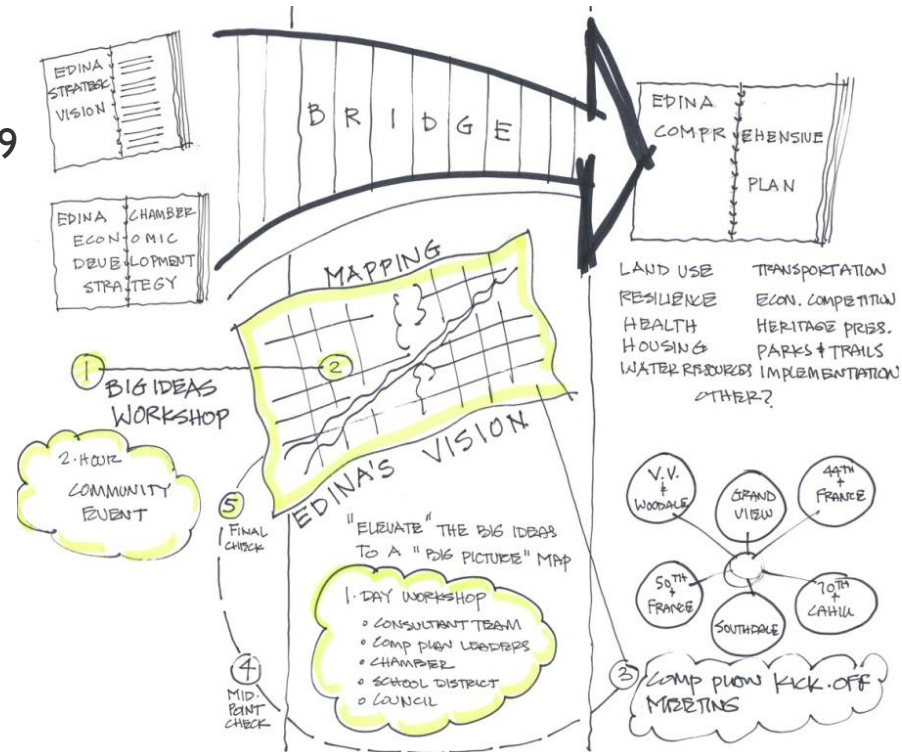 9
EDINA
STRATEGIC
VISION
EDINA CHAMBER
ECONOMIC
DEVELOPMENT
STRATEGY
BRIDGE
EDINA
COMPREHENSIVE
PLAN
LAND USE
RESILIENCE
HEALTH
HOUSING
WATER RESOURCES
TRANSPORTATION
ECON. COMPETITION
HERITAGE PRES.
PARKS & TRAILS
IMPLEMENTATION
OTHER?
MAPPING
EDINA'S VISION
1
BIG IDEAS
WORKSHOP
2
2-HOUR
COMMUNITY
EVENT
5
FINAL
CHECK
"ELEVATE" THE BIG IDEAS
TO A "BIG PICTURE" MAP
1-DAY WORKSHOP
• CONSULTANT TEAM
• COMP PLAN LEADERS
• CHAMBER
• SCHOOL DISTRICT
• COUNCIL
4
MID-
POINT
CHECK
3
COMP PLAN KICK-OFF
MEETING
V.V.
&
WOODALE
GRAND
VIEW
44TH
+
FRANCE
50TH
+
FRANCE
SOUTHDALE
70TH
+
CAHILL